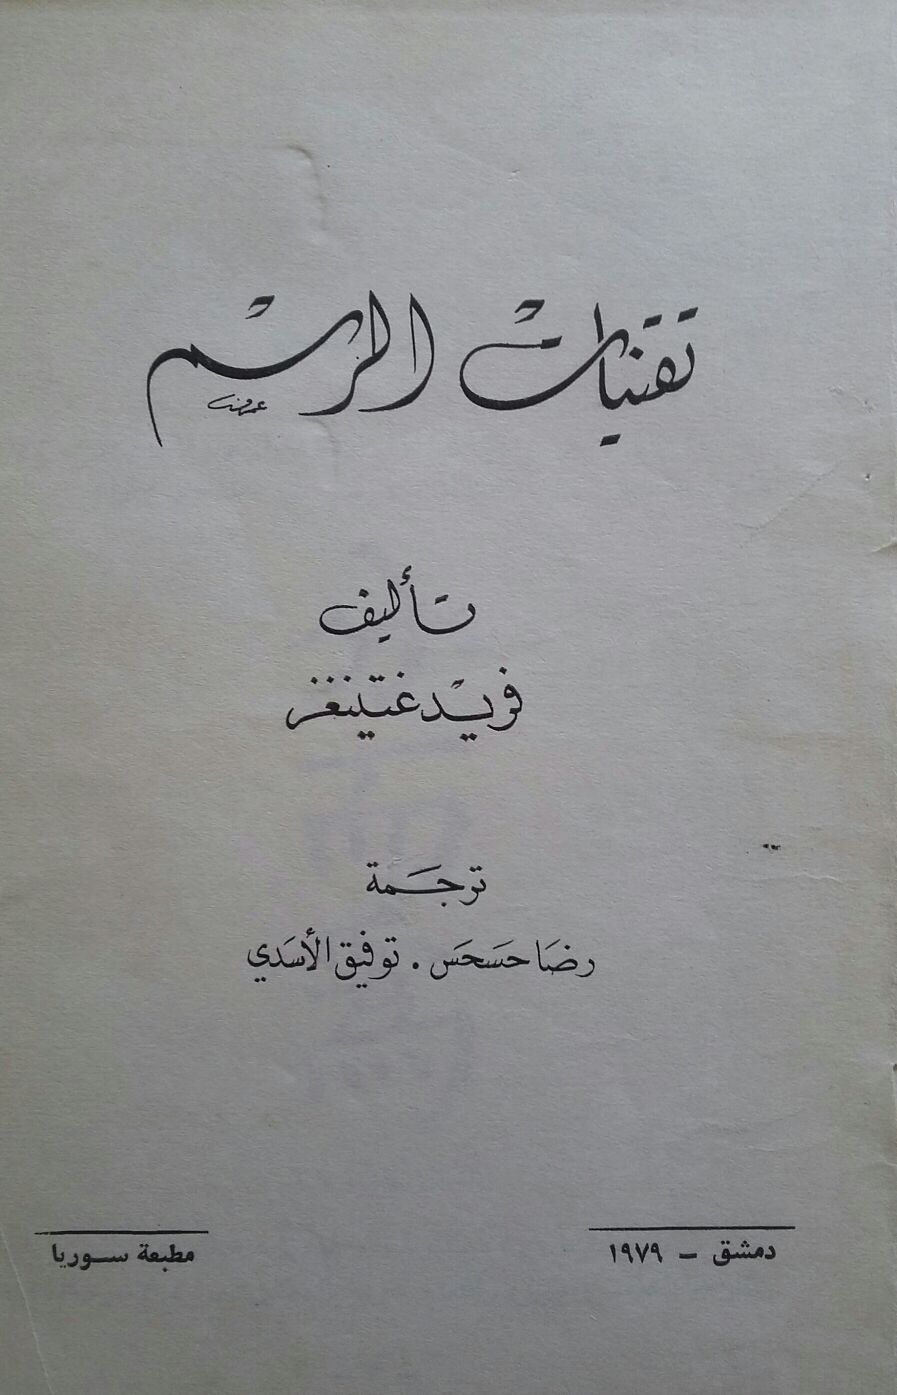 تقنيات الرسم
تأليف
فريد غتينغز
ترجمة
رضَا حَسحَس . توفيق الأسَدي
دمشق – ١٩٧٩
مطبعة سوريا